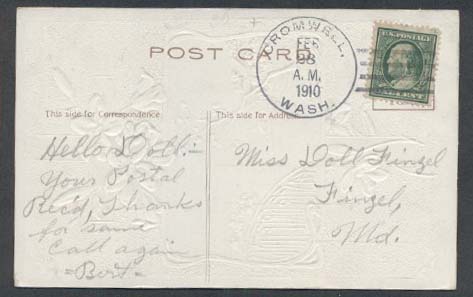 POST CARD
CROMWELL,
FEB
28
A.M.
1910
WASH.
U.S. POSTAGE
1 CENT 1
This side for Correspondence
This side for Address
Hello Doll:-
Your Postal
Rec'd, Thanks
for same
Call again
=Bert=
Miss Doll Finzel
Finzel,
Md.